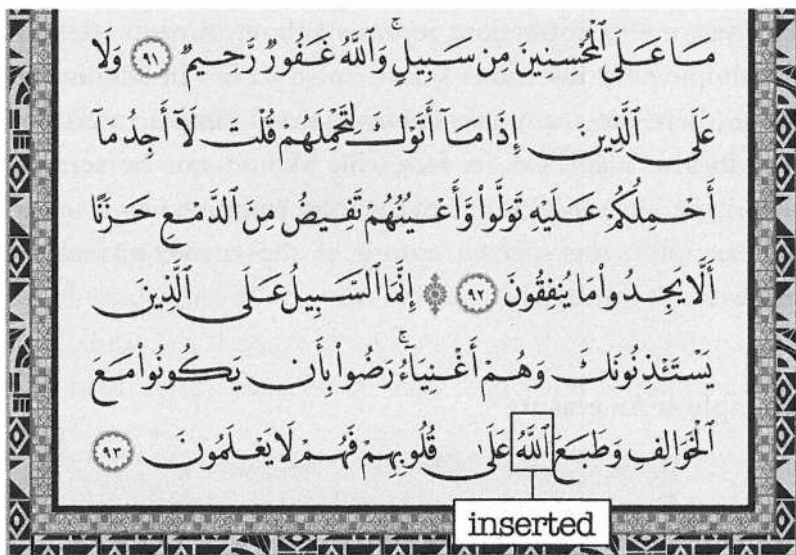 مَا عَلَى ٱلْمُحْسِنِينَ مِن سَبِيلٍ ۚ وَٱللَّهُ غَفُورٌ رَّحِيمٌ ٩١ وَلَا
عَلَى ٱلَّذِينَ إِذَا مَآ أَتَوْكَ لِتَحْمِلَهُمْ قُلْتَ لَآ أَجِدُ مَآ
أَحْمِلُكُمْ عَلَيْهِ تَوَلَّوا۟ وَّأَعْيُنُهُمْ تَفِيضُ مِنَ ٱلدَّمْعِ حَزَنًا
أَلَّا يَجِدُوا۟ مَا يُنفِقُونَ ٩٢ ۞ إِنَّمَا ٱلسَّبِيلُ عَلَى ٱلَّذِينَ
يَسْتَـْٔذِنُونَكَ وَهُمْ أَغْنِيَآءُ ۚ رَضُوا۟ بِأَن يَكُونُوا۟ مَعَ
ٱلْخَوَالِفِ وَطَبَعَ ٱللَّهُ عَلَىٰ قُلُوبِهِمْ فَهُمْ لَا يَعْلَمُونَ ٩٣
inserted